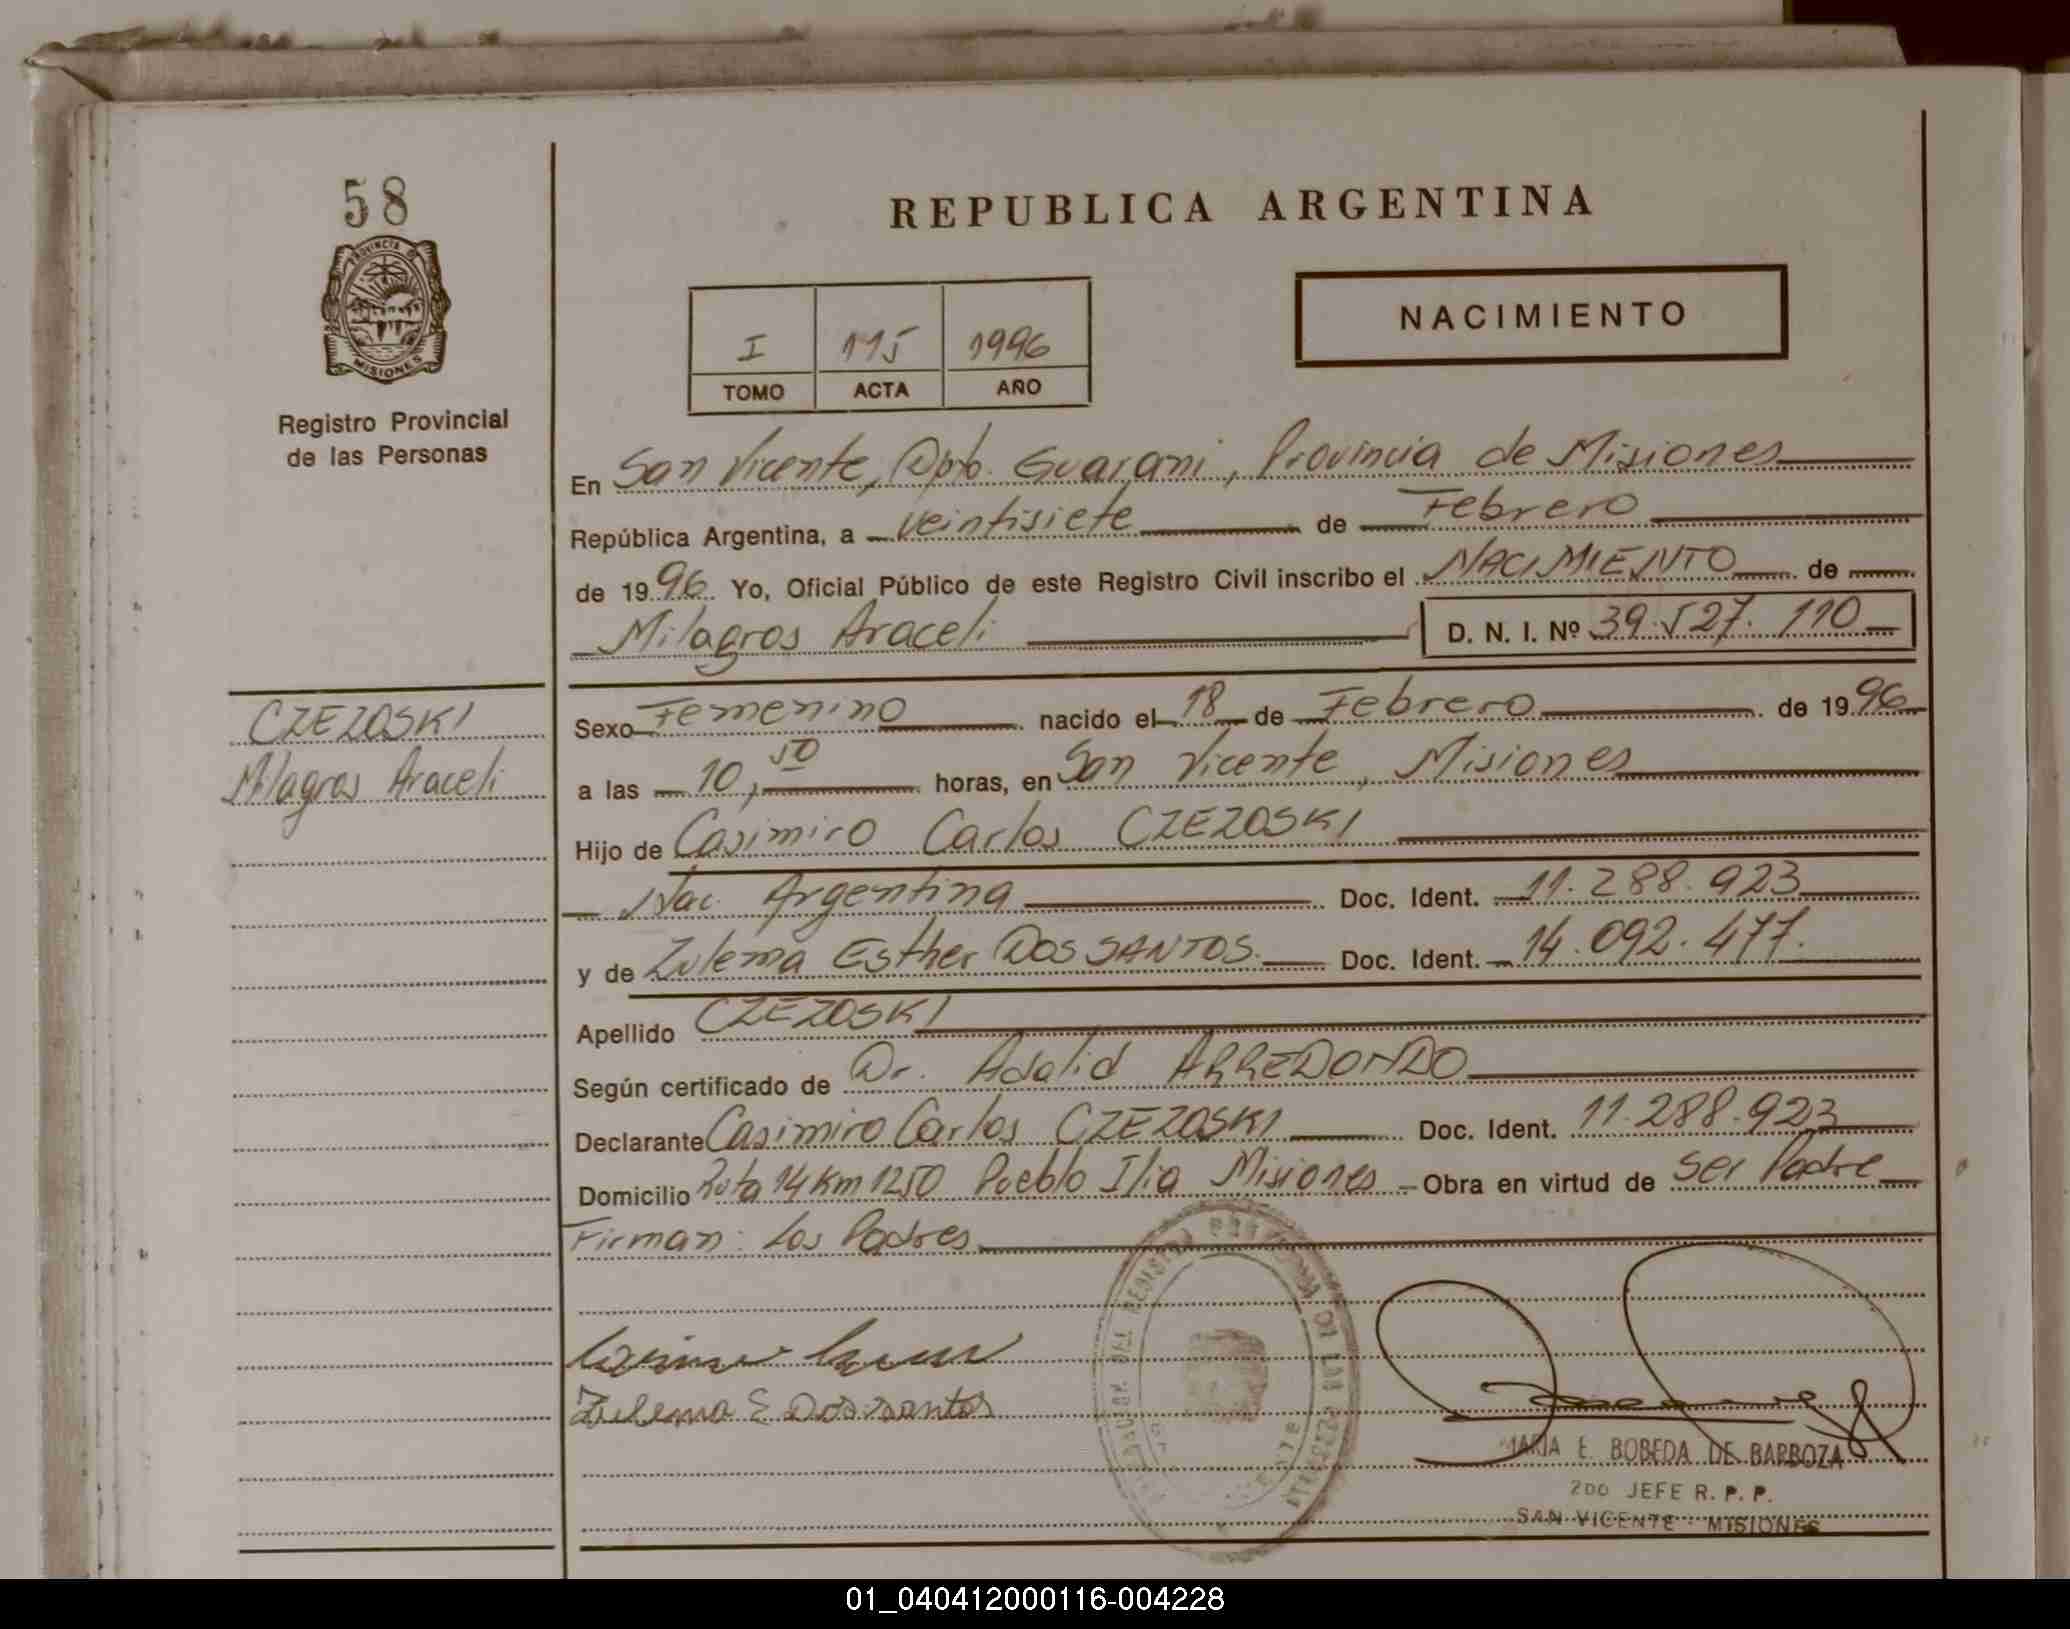 58
REPUBLICA ARGENTINA
PROVINCIA DE
MISIONES
NACIMIENTO
I 115 1996
TOMO ACTA AÑO
Registro Provincial
de las Personas
En San Vicente, Dpto. Guarani, Provincia de Misiones
República Argentina, a veintisiete de Febrero
de 1996. Yo, Oficial Público de este Registro Civil inscribo el NACIMIENTO de
Milagros Araceli D. N. I. Nº 39.527.110
CZEZOSKI
Milagros Araceli
Sexo Femenino nacido el 18 de Febrero de 1996
a las 10,50 horas, en San Vicente, Misiones
Hijo de Casimiro Carlos CZEZOSKI
Nac. Argentina Doc. Ident. 11.288.923
y de Zulema Esther DOS SANTOS. Doc. Ident. 14.092.477.
Apellido CZEZOSKI
Según certificado de Dr. Adalid ARREDONDO
Declarante Casimiro Carlos CZEZOSKI Doc. Ident. 11.288.923
Domicilio Ruta 14 Km 1250 Pueblo Ilia Misiones Obra en virtud de ser Padre
Firman: Los Padres
Zulema E Dos santos
MARIA E. BOBEDA DE BARBOZA
2DO JEFE R. P. P.
SAN VICENTE - MISIONES
01_040412000116-004228